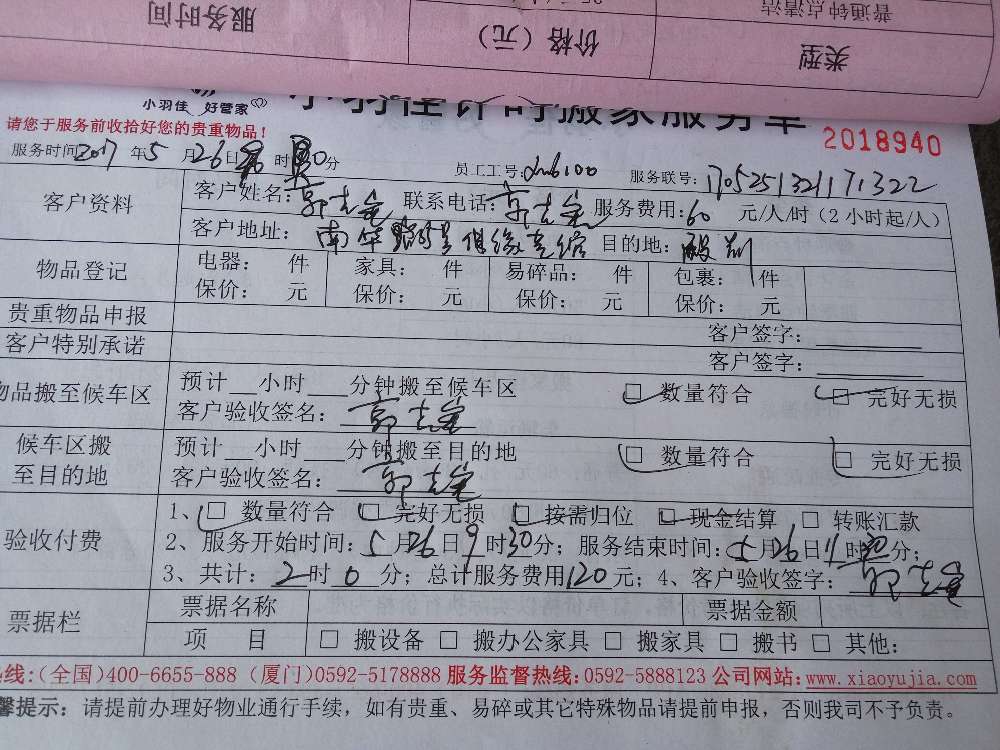 服务时间 价格（元） 类型
普通钟点清洁
小羽佳 好管家
小羽佳计时搬家服务单
2018940
请您于服务前收拾好您的贵重物品！
服务时间2017年5月26日 时30分 员工工号: 服务联号:170525132171322
客户资料 客户姓名: 联系电话: 服务费用:60元/人/时（2小时起/人）
客户地址: 目的地:
物品登记 电器: 件 家具: 件 易碎品: 件 包裹: 件
保价: 元 保价: 元 保价: 元 保价: 元
贵重物品申报 客户签字:
客户特别承诺 客户签字:
物品搬至候车区 预计 小时 分钟搬至候车区 □ 数量符合 □ 完好无损
客户验收签名:
候车区搬至目的地 预计 小时 分钟搬至目的地 □ 数量符合 □ 完好无损
客户验收签名:
验收付费 1、□ 数量符合 □ 完好无损 □ 按需归位 □ 现金结算 □ 转账汇款
2、服务开始时间:5月26日9时30分；服务结束时间:5月26日11时 分；
3、共计:2时0分；总计服务费用120元；4、客户验收签字:
票据栏 票据名称 票据金额
项 目 □ 搬设备 □ 搬办公家具 □ 搬家具 □ 搬书 □ 其他:
热线:(全国)400-6655-888 (厦门)0592-5178888 服务监督热线:0592-5888123 公司网站:www.xiaoyujia.com
馨提示: 请提前办理好物业通行手续，如有贵重、易碎或其它特殊物品请提前申报，否则我司不予负责。